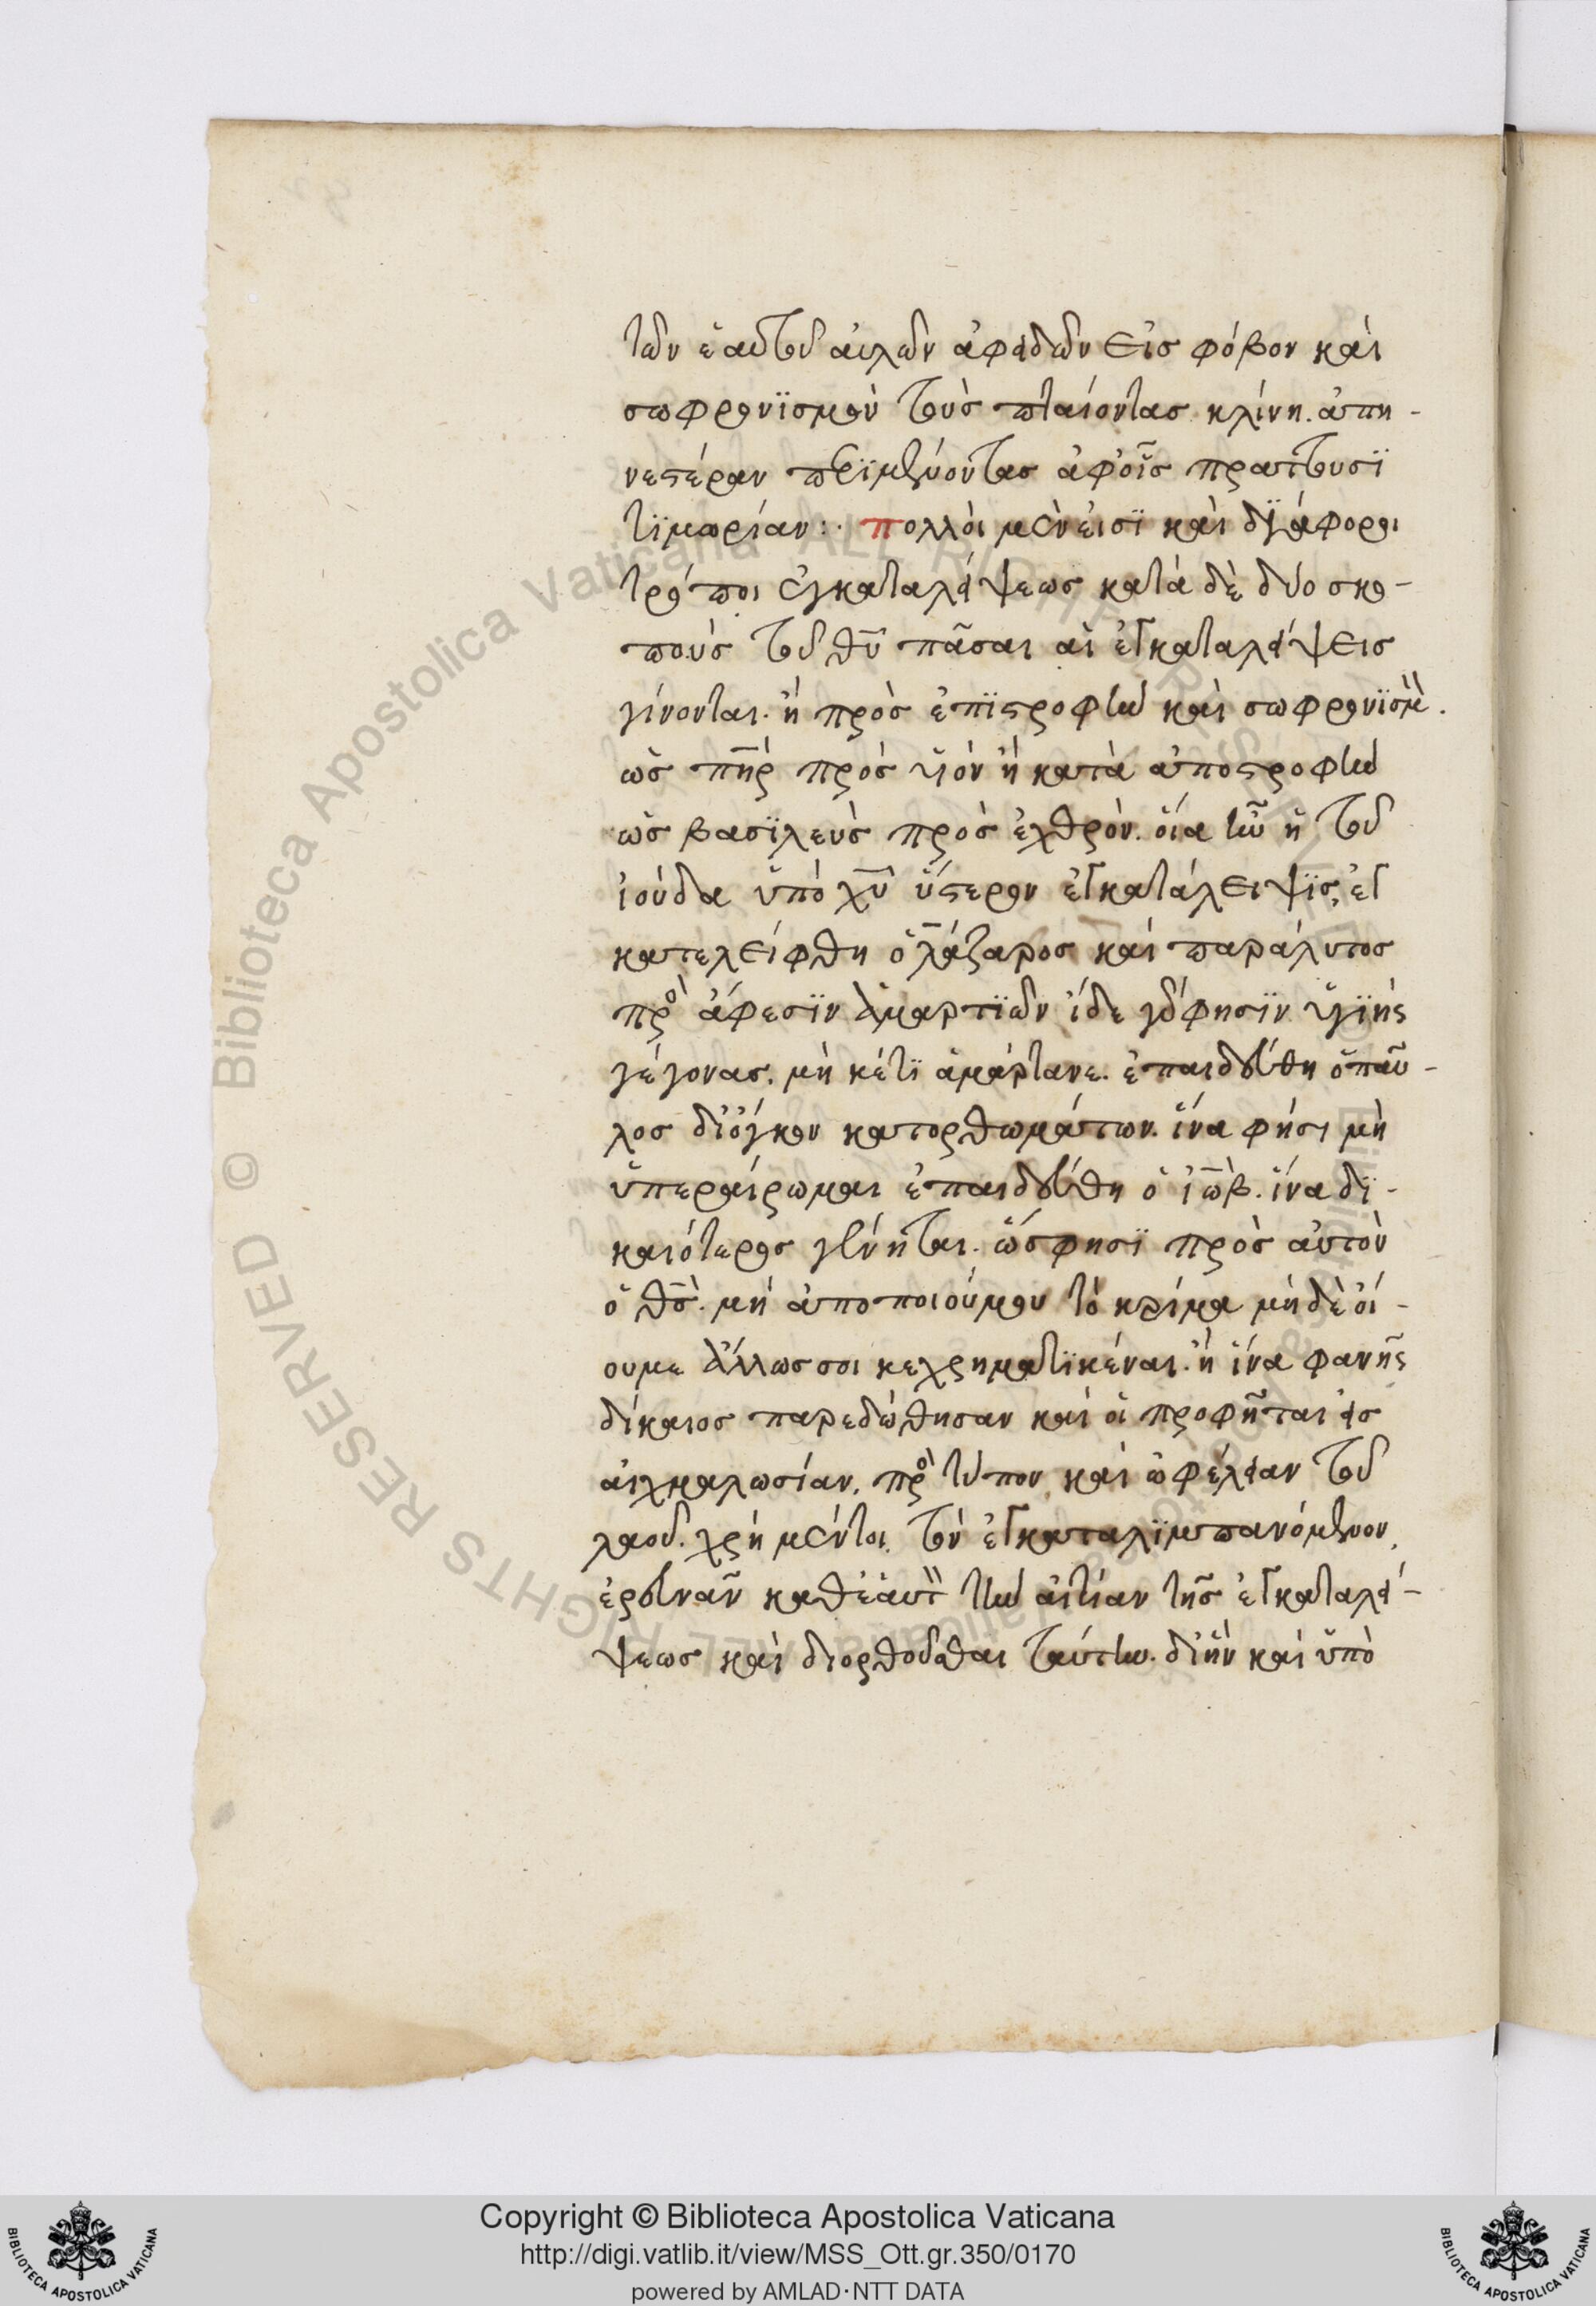 τῶν ἑαυτοῦ αὐλῶν ἀφειδῶν εἰσ φόβον καὶ
σωφρονϊσμὸν τοὺσ πταίοντασ κλίνη. ἀπη-
νεστέραν περϊμένοντασ ἀφ'οἷσ πράττουσϊ
τϊμωρίαν:· πολλοὶ μὲν εἰσϊ καὶ δϊάφοροι
τρόποι ἐγκαταλείψεωσ κατὰ δὲ δύο σκο-
ποὺσ τοῦ θῦ πᾶσαι αἱ ἐγκαταλείψεισ
γίνονται. ἢ πρὸσ ἐπϊστροφὴν καὶ σωφρονϊσμὸν.
ὡσ πὴρ πρὸσ υἱὸν ἢ κατὰ ἀποστροφὴν
ὡσ βασϊλεὺσ πρὸσ ἐχθρὸν. οἵα ἦν ἡ τοῦ
ἰούδα ὑπὸ χῦ ὕστερον ἐγκατάλειψϊς, ἐγ
κατελείφθη ὁ λάζαροσ καὶ παράλυτοσ
πρὸ ἄφεσϊν ἁμαρτϊῶν ἴδε γάρ φησϊν ὑγϊὴς
γέγονασ. μὴ κέτϊ ἁμάρτανε. ἐπαιδεύθη ὁ παῦ-
λοσ δι'ὄγκον κατορθωμάτων. ἵνα φήσι μὴ
ὑπεραίρωμαι ἐπαιδεύθη ὁ ἰὼβ. ἵνα δϊ-
καιότεροσ γένηται. ὥσ φησϊ πρὸσ αὐτὸν
ὁ θσ. μὴ ἀποποιούμου τὸ κρίμα μὴ δὲ οἴ-
ουμε ἄλλωσ σοι κεχρηματϊκέναι. ἢ ἵνα φανῆς
δίκαιοσ παρεδώθησαν καὶ οἱ προφῆται εἰσ
αἰχμαλωσίαν. πρὸ τύπον καὶ ὠφέλειαν τοῦ
λαοῦ. χρὴ μέντοι τὸν ἐγκαταλϊμπανόμενον
ἐρευνᾶν καθ'ἑαυτ τὴν αἰτίαν τῆσ ἐγκαταλεί-
ψεωσ καὶ διορθοῦσθαι ταύτην. δι'ἣν καὶ ὑπὸ
Copyright © Biblioteca Apostolica Vaticana
http://digi.vatlib.it/view/MSS_Ott.gr.350/0170
powered by AMLAD·NTT DATA